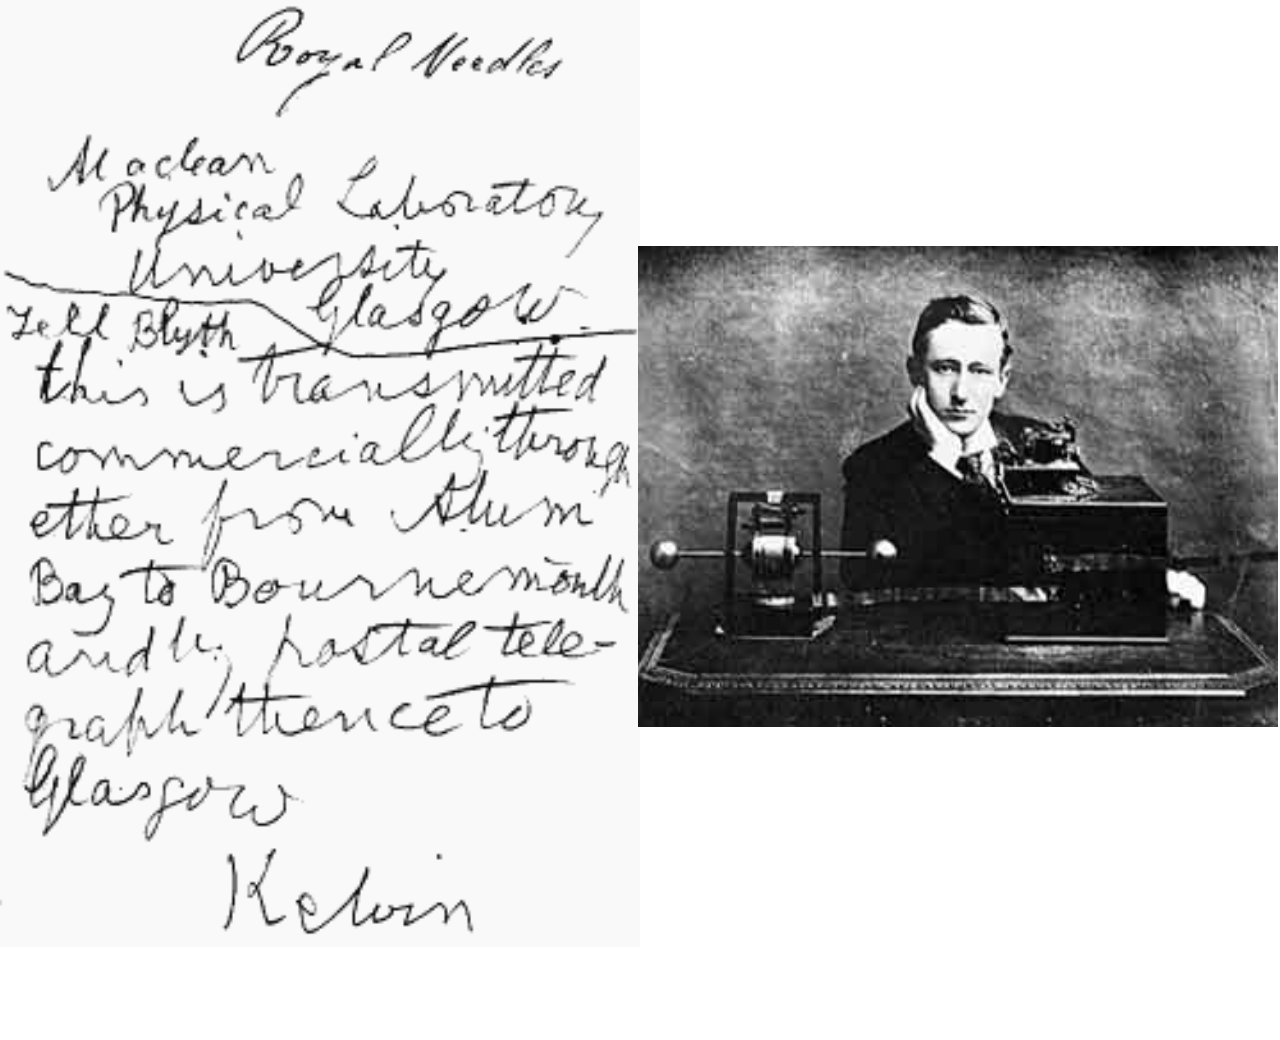 Royal Needles
Maclean
Physical Laboratory
University
Glasgow
Tell Blyth
this is transmitted
commercially through
ether from Alum
Bay to Bournemouth
and by postal tele-
graph thence to
Glasgow
Kelvin